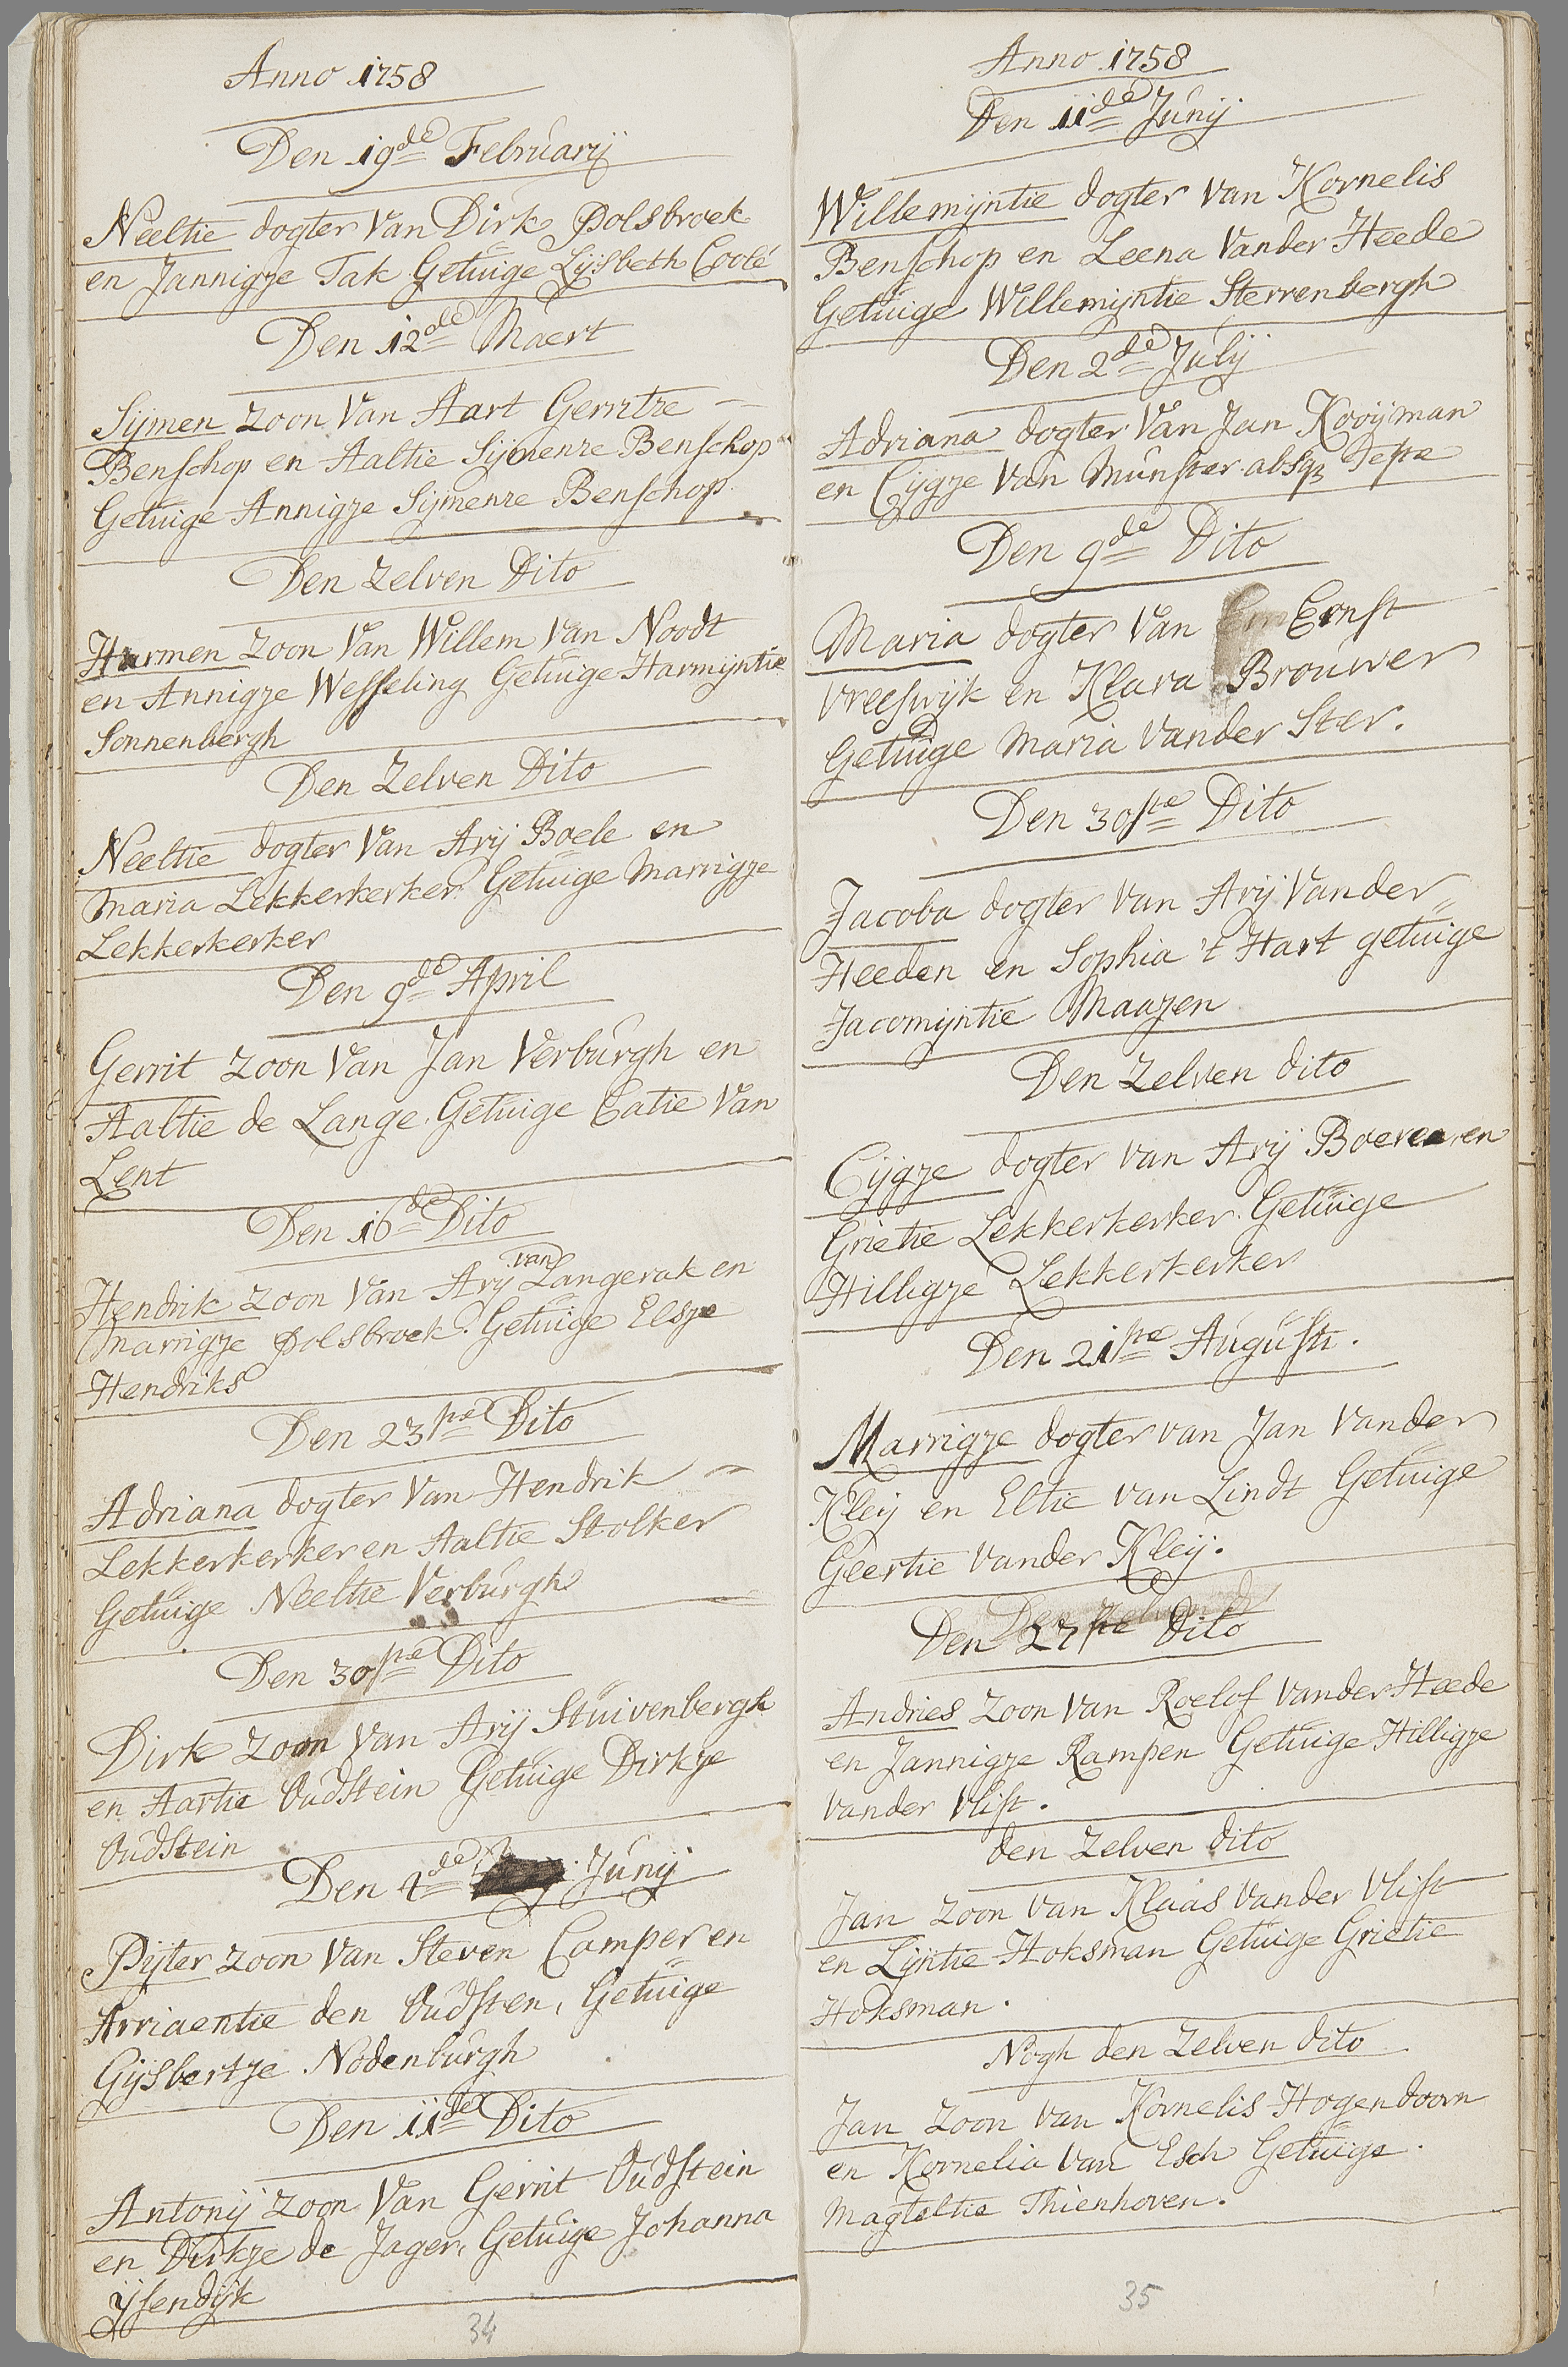 Anno 1758
Den 19de Februarij
Neeltie dogter Van Dirk Polsbroek
en Jannigje Tak Getuige Lijsbeth Coolé
Den 12de Maert
Sijmen Zoon Van Aart Gerritze
Benschop en Aaltie Sijmenze Benschop
Getuige Annigje Sijmenze Benschop
Den Zelven Dito
Harmen Zoon Van Willem Van Noodt
en Annigje Wesseling Getuige Harmijntie
Sonnenbergh
Den Zelven Dito
Neeltie dogter Van Arij Boele en
Maria Lekkerkerker Getuige Marrigje
Lekkerkerker
Den 9de April
Gerrit Zoon Van Jan Verburgh en
Aaltie de Lange Getuige Catie Van
Lent
Den 16de Dito
Hendrik Zoon Van Arij van Langerak en
Marrigje Polsbroek Getuige Elsje
Hendriks
Den 23ste Dito
Adriana dogter Van Hendrik
Lekkerkerker en Aaltie Stolker
Getuige Neeltie Verburgh
Den 30ste Dito
Dirk Zoon Van Arij Stuivenbergh
en Aartie Oudstein Getuige Dirkje
Oudstein
Den 4de Junij
Pijter Zoon Van Steven Camper en
Arriaentie den Oudsten, Getuige
Gijsbertje Nodenburgh
Den 11de Dito
Antonij Zoon Van Gerrit Oudstein
en Dirkje de Jager, Getuige Johanna
ijsendijk
34
Anno 1758
Den 11de Junij
Willemijntie dogter van Kornelis
Benschop en Leena Vander Heede
Getuige Willemijntie Sterrenbergh
Den 2de Julij
Adriana dogter Van Jan Kooijman
en Cijgje Van Munster absq Teste
Den 9de Dito
Maria dogter Van Ernst
Vreeswijk en Klara Brouwer
Getuige Maria Vander Ster.
Den 30ste Dito
Jacoba dogter van Arij Vander
Heeden en Sophia 't Hart getuige
Jacomijntie Maazen
Den Zelven dito
Cijgje dogter van Arij Boeree en
Grietie Lekkerkerker Getuige
Hilligje Lekkerkerker
Den 21ste Augusti.
Marrigje dogter van Jan Vander
Kleij en Eltie van Lindt Getuige
Geertie Vander Kleij.
Den 27ste Dito
Andries Zoon Van Roelof Vander Heede
en Jannigje Rampen Getuige Hilligje
Vander Vlist.
den Zelven dito
Jan Zoon Van Klaas Vander Vlist
en Lijntie Hoksman Getuige Grietie
Hoksman.
Nogh den Zelven dito
Jan Zoon Van Kornelis Hogendoorn
en Kornelia Van Esch Getuige
Magteltie Thienhoven.
35